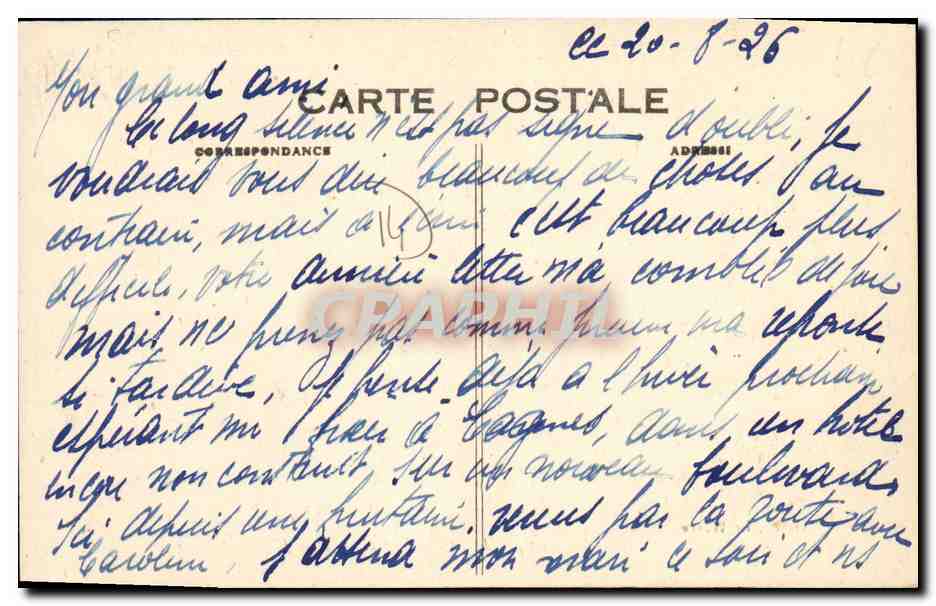 ce 20-8-26
Mon grand ami
CARTE POSTALE
Ce long silence n'est pas signe d'oubli, je
CORRESPONDANCE
ADRESSE
voudrais vous dire beaucoup de choses au
contraire, mais à c'est beaucoup plus
14
difficile, votre dernière lettre m'a comblé de joie
CPARAMA
mais ne prenez pas comme preuve ma réponse
si tardive, Je pense déjà à l'hiver prochain
espérant me fixer à Cagnes, dans un hôtel
encore non construit, sur un nouveau boulevard,
Ici depuis une huitaine, venus par la route avec
Caroline, j'attend mon mari ce soir et ns